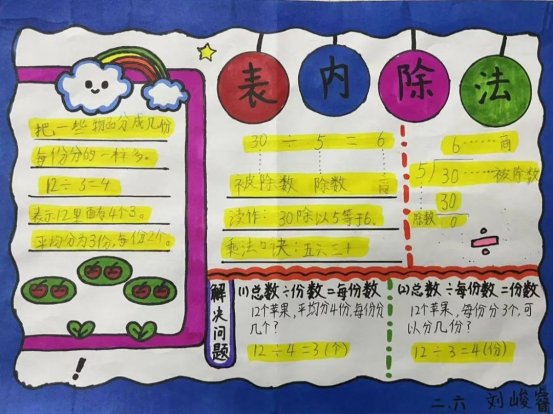 表内除法
把一些物品分成几份
每份分的一样多。
12÷3=4
表示12里面有4个3。
平均分为3份,每份2个。
30 ÷ 5 = 6
被除数 除数 商
读作:30除以5等于6.
乘法口诀:五六三十
6……商
5 30……被除数
30
除数 0
÷
解决问题
(1)总数÷份数=每份数
12个苹果,平均分4份,每份分
几个?
12÷4=3(个)
(2)总数÷每份数=份数
12个苹果,每份分3个,可
以分几份?
12÷3=4(份)
!
二.六 刘峻睿